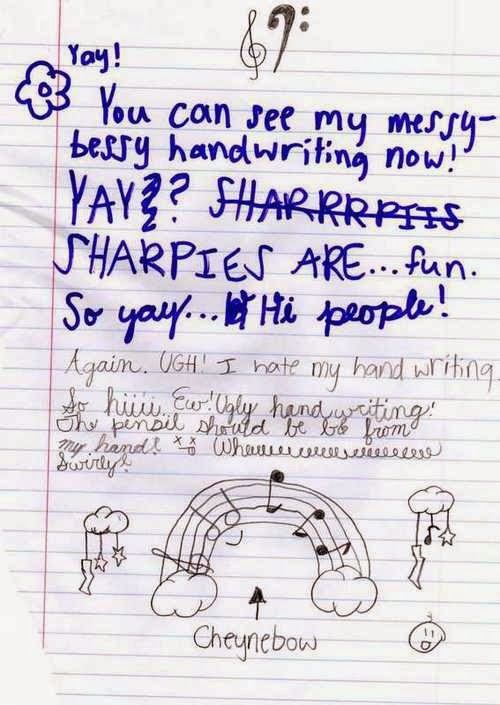 Yay!
You can see my messy-
bessy handwriting now!
YAY?? SHARRRPIIS
SHARPIES ARE... fun.
So yay... Hi people!
Again. UGH! I hate my hand writing.
So hiiii. Ew! Ugly hand writing!
The pensil should be be from
my hand!
Swirly!
Cheynebow